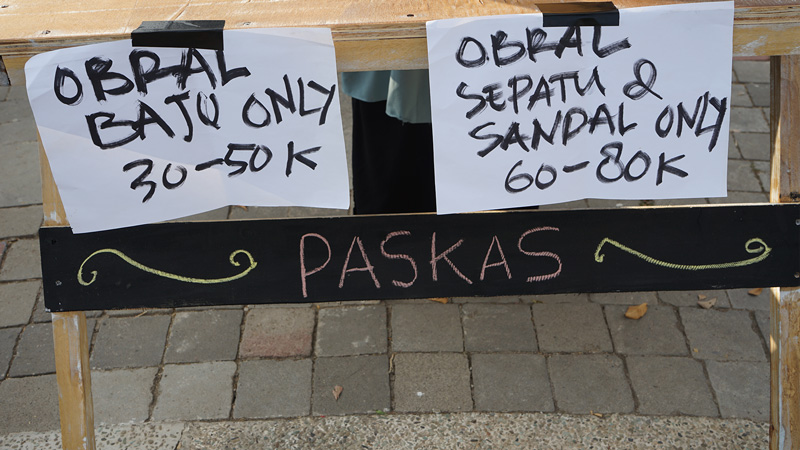 OBRAL
BAJU ONLY
30-50K
OBRAL
SEPATU &
SANDAL ONLY
60-80K
PASKAS